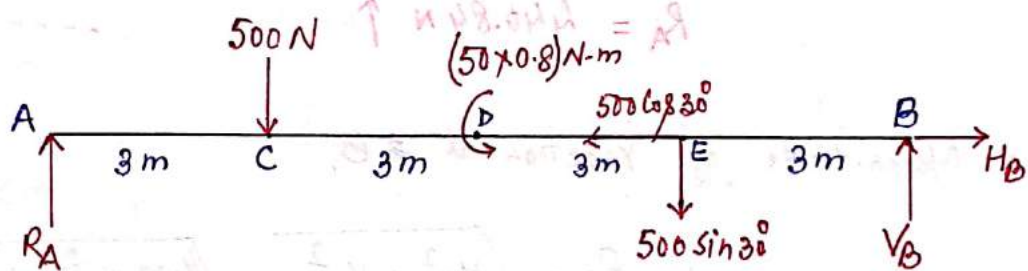 500 N
(50×0.8) N-m
A
D
500 Cos 30°
B
3m
C
3m
3m
E
3m
H_B
R_A
500 sin 30°
V_B